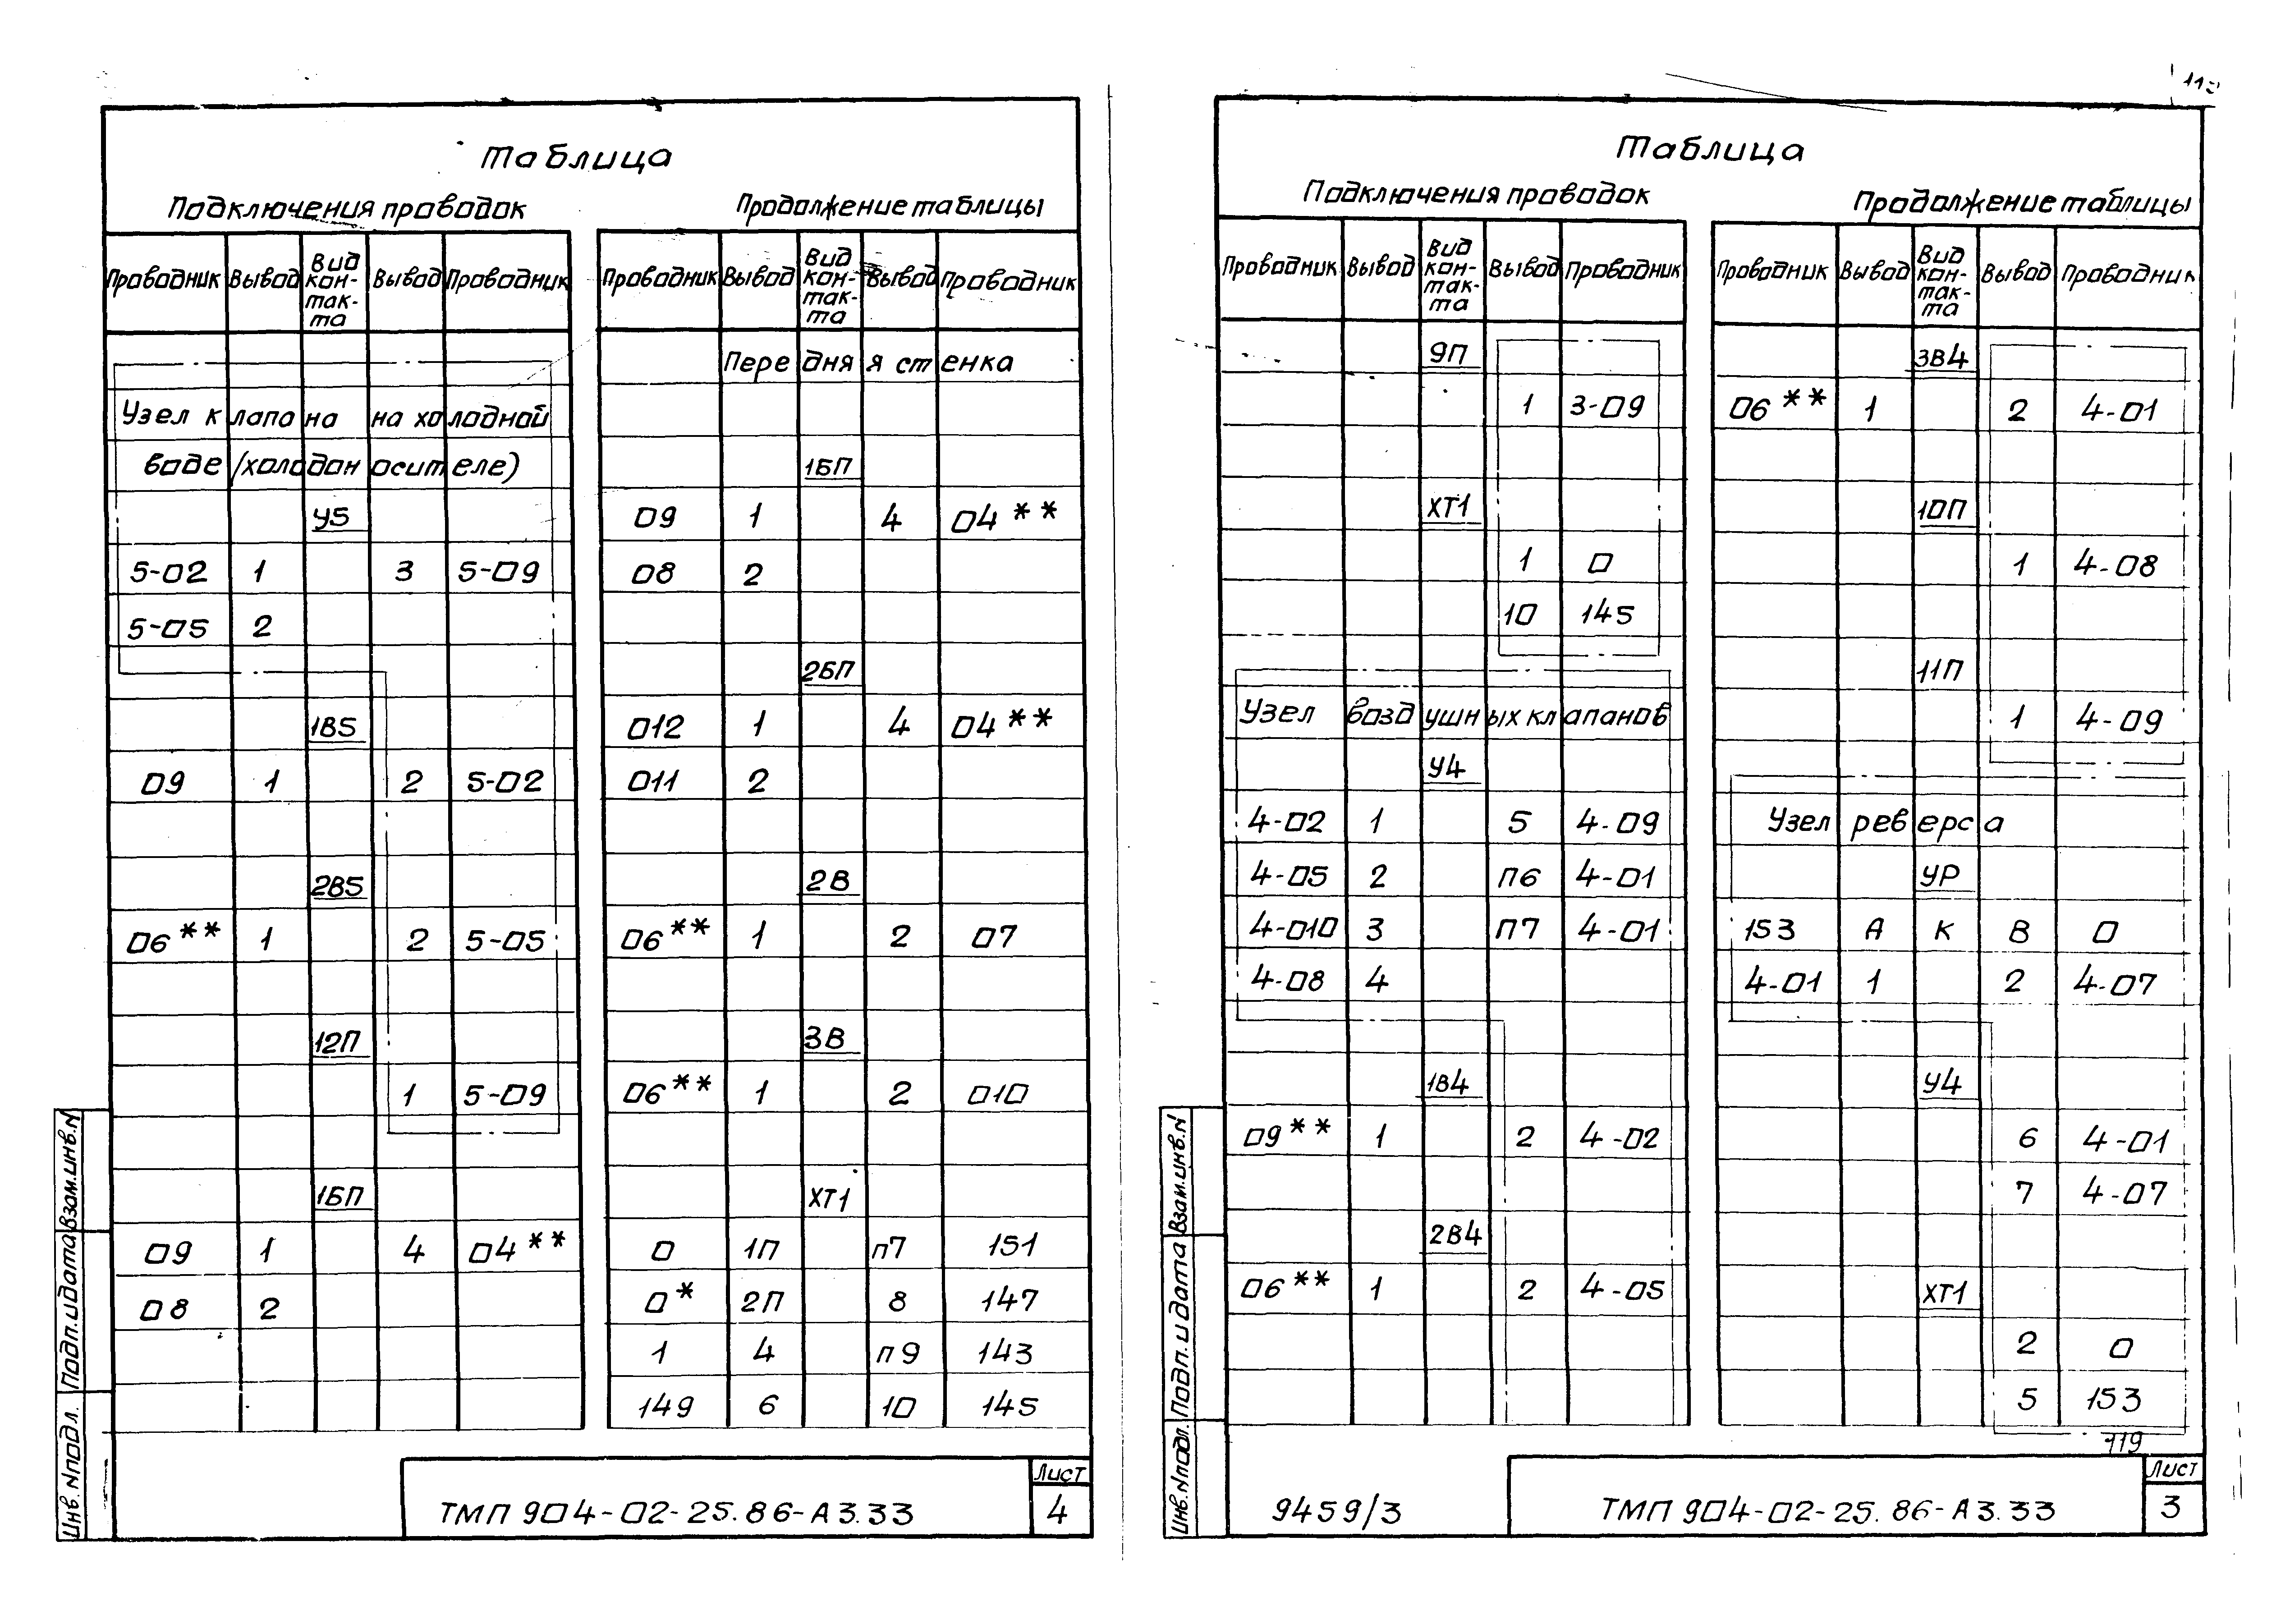 Таблица
Подключения проводок
Продолжение таблицы
Проводник Вывод Вид кон-так-та Вывод Проводник
Узел клапана на холодной
воде (холодоносителе)
У5
5-02 1 3 5-09
5-05 2
1В5
09 1 2 5-02
2В5
06** 1 2 5-05
12П
1 5-09
1БП
09 1 4 04**
08 2
Проводник Вывод Вид кон-так-та Вывод Проводник
Передняя стенка
1БП
09 1 4 04**
08 2
2БП
012 1 4 04**
011 2
2В
06** 1 2 07
3В
06** 1 2 010
ХТ1
0 1П п7 151
0* 2П 8 147
1 4 п9 143
149 6 10 145
Инв. N подл. Подп. и дата Взам. инв. N
ТМП 904-02-25.86-А3.33
Лист
4
Таблица
Подключения проводок
Продолжение таблицы
Проводник Вывод Вид кон-так-та Вывод Проводник
9П
1 3-09
ХТ1
1 0
10 145
Узел воздушных клапанов
У4
4-02 1 5 4-09
4-05 2 п6 4-01
4-010 3 п7 4-01
4-08 4
1В4
09** 1 2 4-02
2В4
06** 1 2 4-05
Проводник Вывод Вид кон-так-та Вывод Проводник
3В4
06** 1 2 4-01
10П
1 4-08
11П
1 4-09
Узел реверса
УР
153 А К В 0
4-01 1 2 4-07
У4
6 4-01
7 4-07
ХТ1
2 0
5 153
119
Инв. N подл. Подп. и дата Взам. инв. N
9459/3
ТМП 904-02-25.86-А3.33
Лист
3